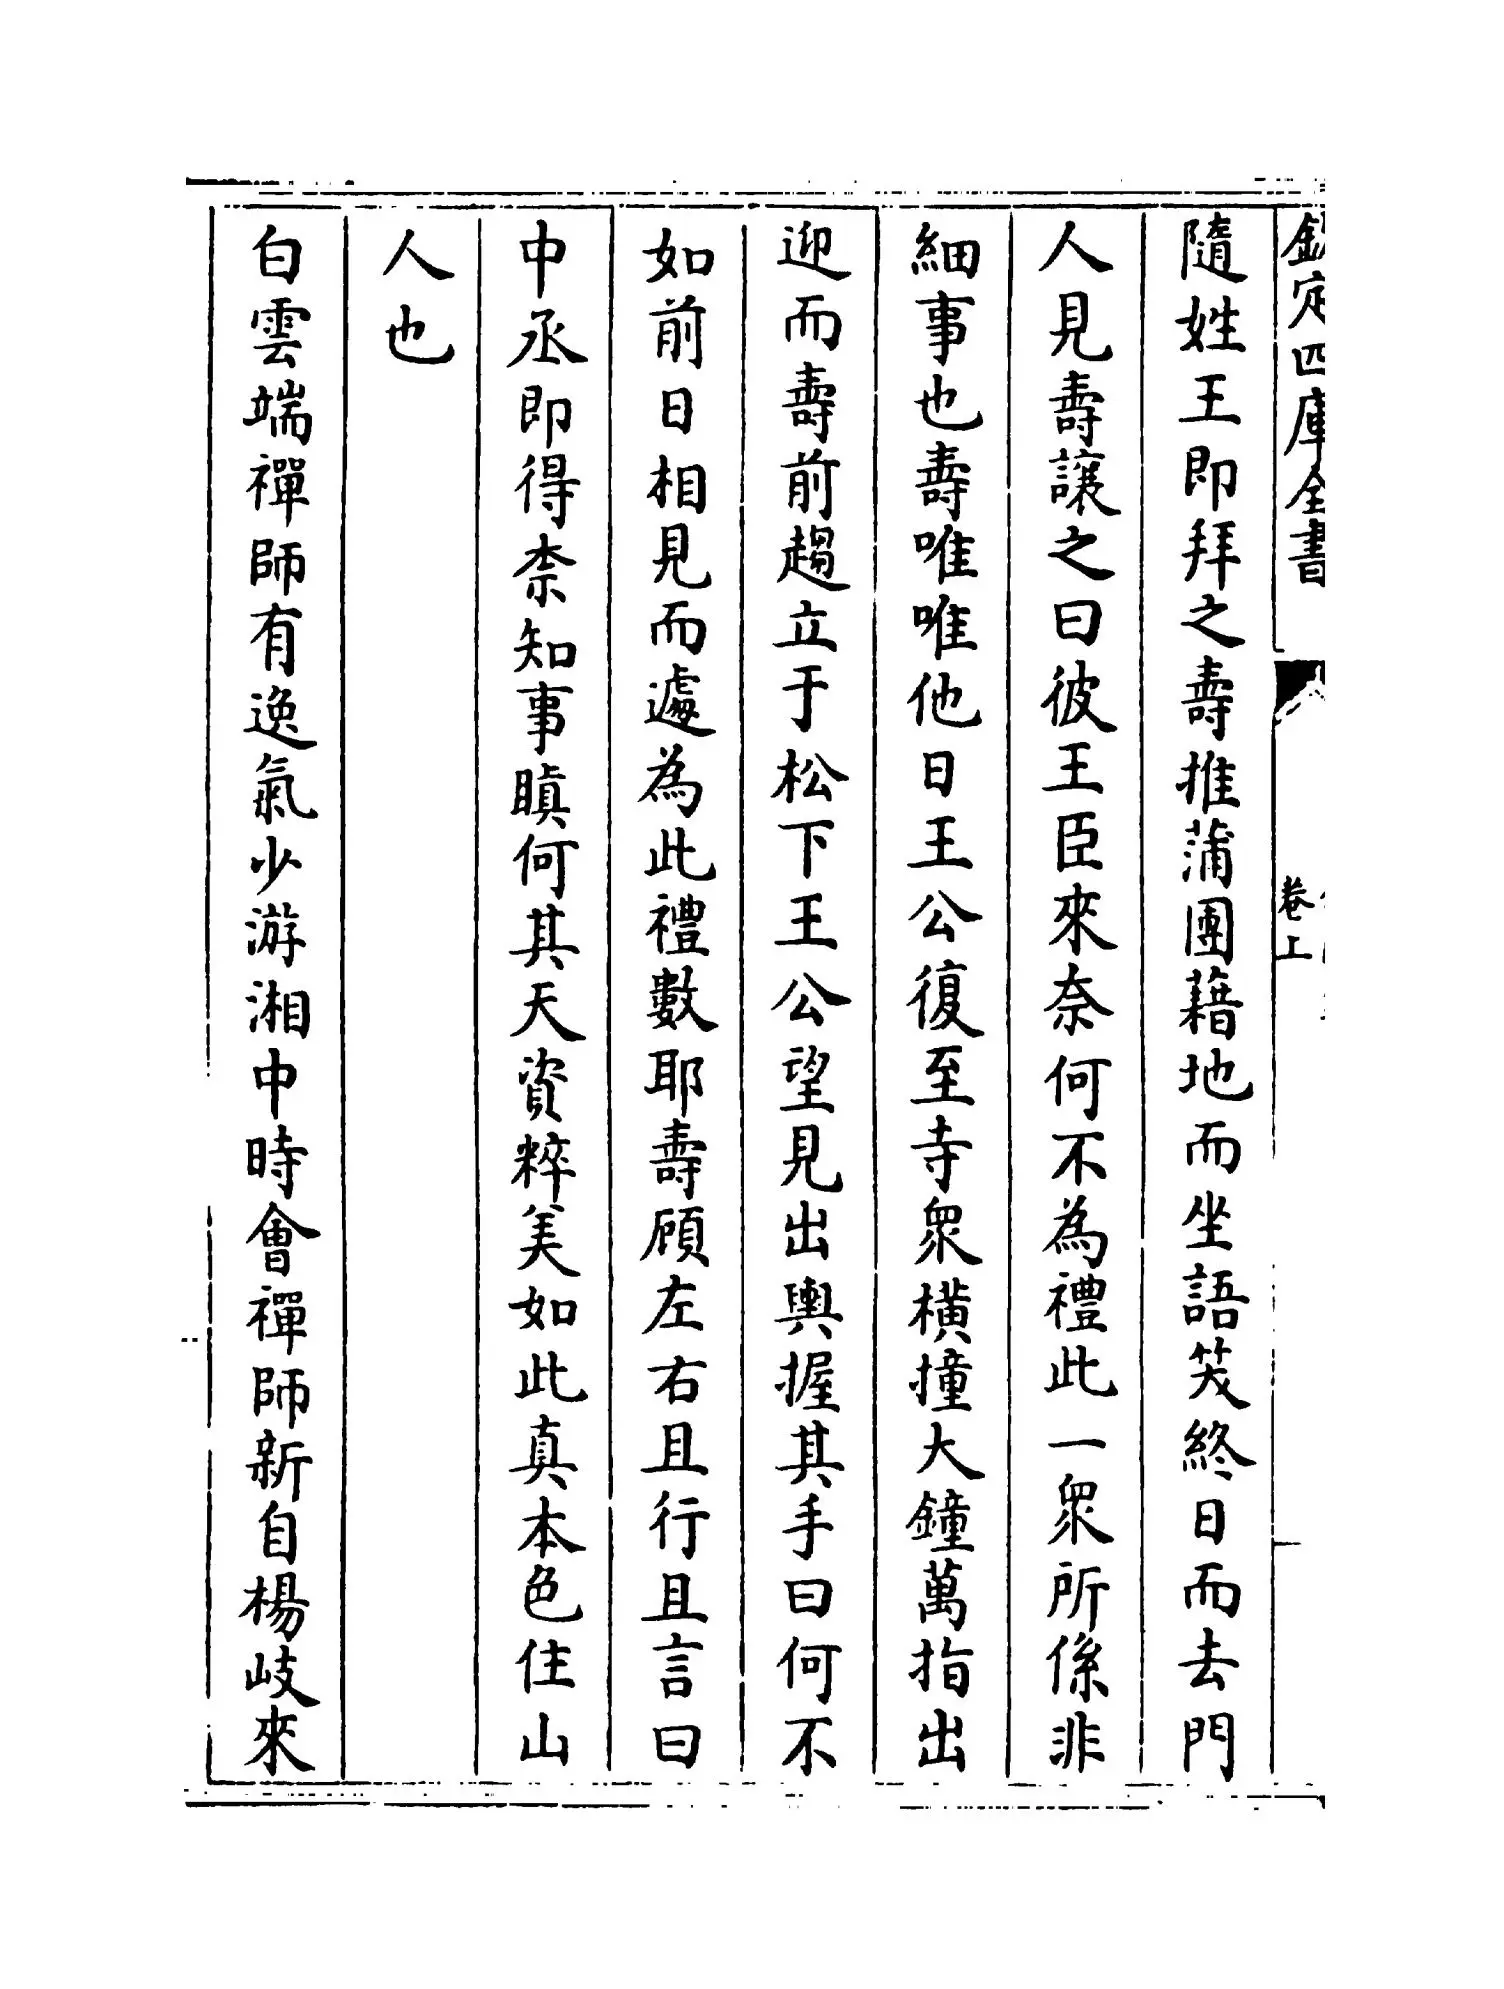 欽定四庫全書
卷上
隨姓王即拜之壽推蒲團藉地而坐語笑終日而去門
人見壽讓之曰彼王臣來奈何不為禮此一衆所係非
細事也壽唯唯他日王公復至寺衆横撞大鐘萬指出
迎而壽前趨立于松下王公望見出輿握其手曰何不
如前日相見而遽為此禮數耶壽顧左右且行且言曰
中丞即得柰知事瞋何其天資粹美如此真本色住山
人也
白雲端禪師有逸氣少游湘中時會禪師新自楊岐來